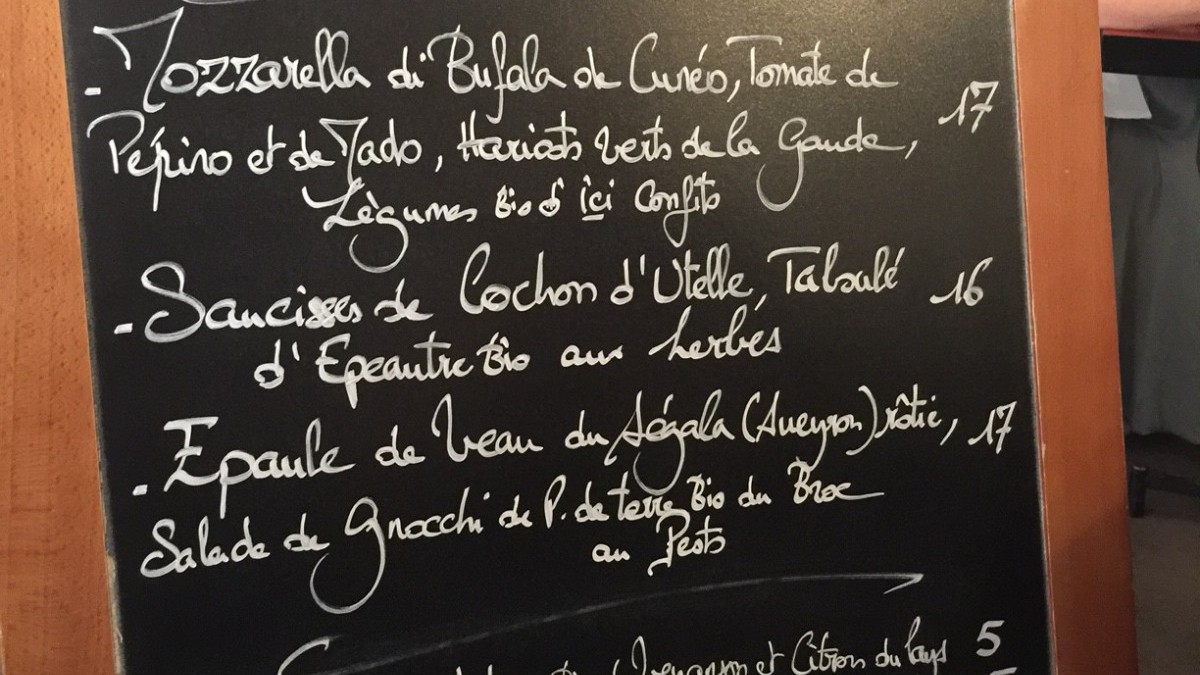 - Mozzarella di Bufala de Cunéo, Tomate de
Pépino et de Mado, Haricots verts de la Gaude, 17
Légumes Bio d'ici Confits
- Saucisses de Cochon d'Utelle, Taboulé 16
d'Epeautre Bio aux herbes
- Epaule de Veau du Ségala (Aveyron) rôtie, 17
Salade de Gnocchi de P. de terre Bio du Broc
au Pesto
et Citron du Pays 5